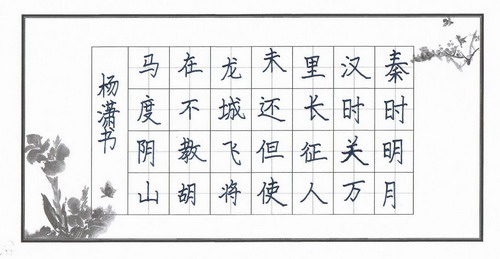 秦时明月
汉时关万
里长征人
未还但使
龙城飞将
在不教胡
马度阴山
杨潇书